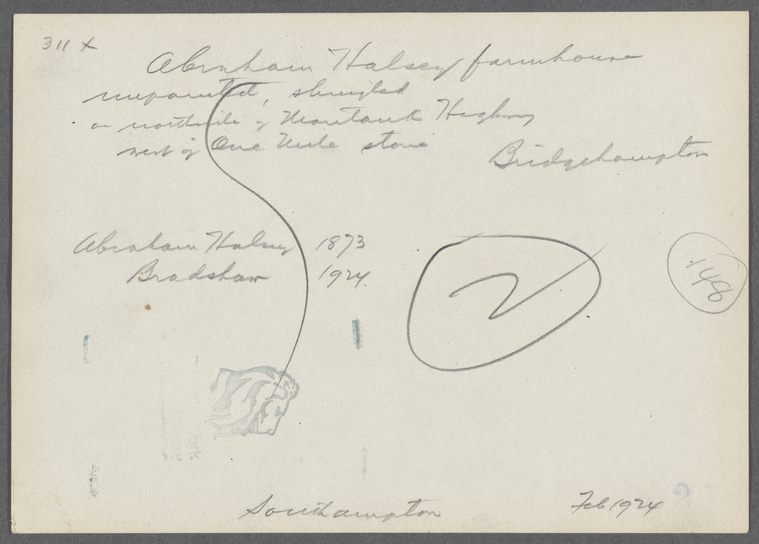 311 X
Abraham Halsey farmhouse
unpainted, shingled
on north side of Montauk Highway
west of One Mile stone
Bridgehampton
Abraham Halsey 1873
Bradshaw 1924.
2
148
Southampton
Feb 1924